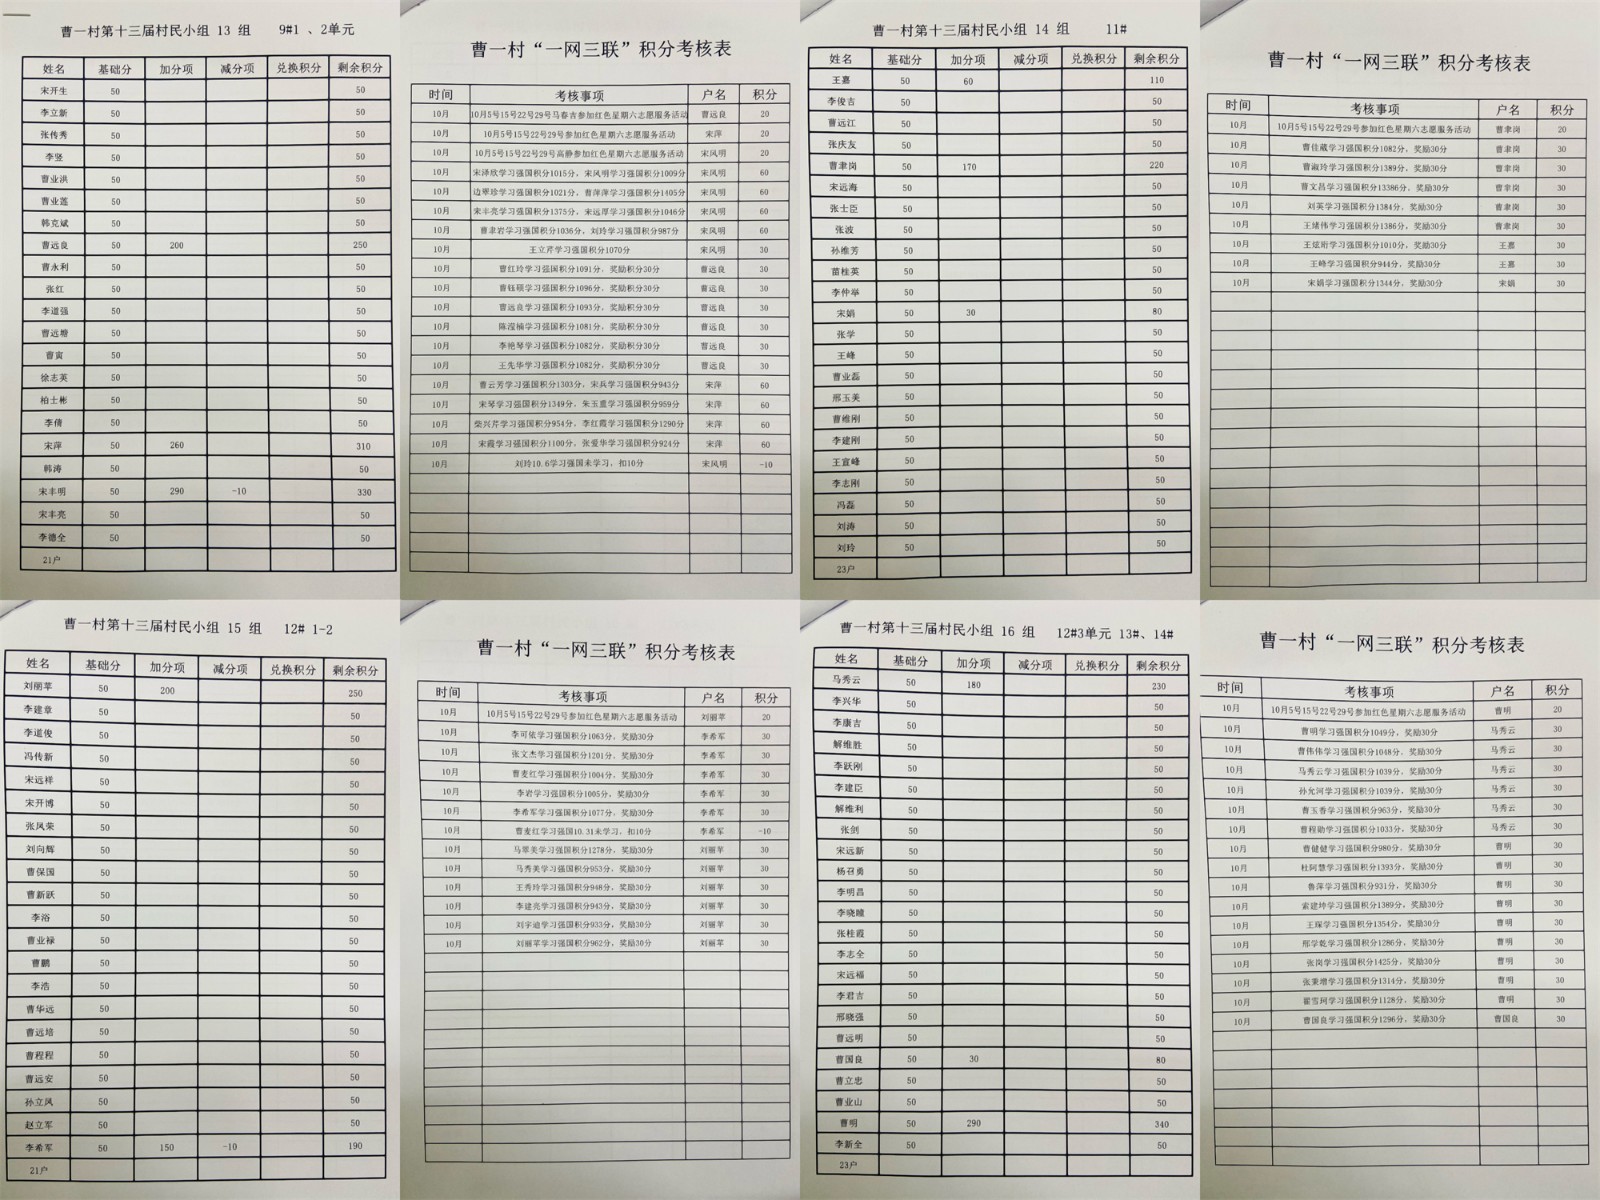 曹一村第十三届村民小组 13 组 9#1 、2单元
姓名 基础分 加分项 减分项 兑换积分 剩余积分
宋开生 50 50
李立新 50 50
张传秀 50 50
李坚 50 50
曹业洪 50 50
曹业莲 50 50
韩克斌 50 50
曹远良 50 200 250
曹永利 50 50
张红 50 50
李道强 50 50
曹远塘 50 50
曹寅 50 50
徐志英 50 50
柏士彬 50 50
李倩 50 50
宋萍 50 260 310
韩涛 50 50
宋丰明 50 290 -10 330
宋丰亮 50 50
李德全 50 50
21户
曹一村“一网三联”积分考核表
时间 考核事项 户名 积分
10月 10月5号15号22号29号马春吉参加红色星期六志愿服务活动 曹远良 20
10月 10月5号15号22号29号参加红色星期六志愿服务活动 宋萍 20
10月 10月5号15号22号29号高静参加红色星期六志愿服务活动 宋风明 20
10月 宋泽欣学习强国积分1015分，宋风明学习强国积分1009分 宋风明 60
10月 边翠珍学习强国积分1021分，曹萍萍学习强国积分1405分 宋风明 60
10月 宋丰亮学习强国积分1375分，宋远厚学习强国积分1046分 宋风明 60
10月 曹聿岩学习强国积分1036分，刘玲学习强国积分987分 宋风明 60
10月 王立芹学习强国积分1070分 宋风明 30
10月 曹红玲学习强国积分1091分，奖励积分30分 曹远良 30
10月 曹钰硕学习强国积分1096分，奖励积分30分 曹远良 30
10月 曹远良学习强国积分1093分，奖励积分30分 曹远良 30
10月 陈滢楠学习强国积分1081分，奖励积分30分 曹远良 30
10月 李艳琴学习强国积分1082分，奖励积分30分 曹远良 30
10月 王先华学习强国积分1082分，奖励积分30分 曹远良 30
10月 曹云芳学习强国积分1303分，宋兵学习强国积分943分 宋萍 60
10月 宋琴学习强国积分1349分，朱玉董学习强国积分959分 宋萍 60
10月 柴兴芹学习强国积分954分，李红霞学习强国积分1290分 宋萍 60
10月 宋霞学习强国积分1100分，张爱华学习强国积分924分 宋萍 60
10月 刘玲10.6学习强国未学习，扣10分 宋风明 -10
曹一村第十三届村民小组 14 组 11#
姓名 基础分 加分项 减分项 兑换积分 剩余积分
王嘉 50 60 110
李俊吉 50 50
曹远江 50 50
张庆友 50 50
曹聿岗 50 170 220
宋远海 50 50
张士臣 50 50
张波 50 50
孙维芳 50 50
苗桂英 50 50
李仲举 50 50
宋娟 50 30 80
张学 50 50
王峰 50 50
曹业磊 50 50
邢玉美 50 50
曹维刚 50 50
李建刚 50 50
王宣峰 50 50
李志刚 50 50
冯磊 50 50
刘涛 50 50
刘玲 50 50
23户
曹一村“一网三联”积分考核表
时间 考核事项 户名 积分
10月 10月5号15号22号29号参加红色星期六志愿服务活动 曹聿岗 20
10月 曹佳葳学习强国积分1082分，奖励30分 曹聿岗 30
10月 曹淑玲学习强国积分1389分，奖励30分 曹聿岗 30
10月 曹文昌学习强国积分13386分，奖励30分 曹聿岗 30
10月 刘英学习强国积分1384分，奖励30分 曹聿岗 30
10月 王绪伟学习强国积分1386分，奖励30分 曹聿岗 30
10月 王炫珩学习强国积分1010分，奖励30分 王嘉 30
10月 王峰学习强国积分944分，奖励30分 王嘉 30
10月 宋娟学习强国积分1344分，奖励30分 宋娟 30
曹一村第十三届村民小组 15 组 12# 1-2
姓名 基础分 加分项 减分项 兑换积分 剩余积分
刘丽苹 50 200 250
李建章 50 50
李道俊 50 50
冯传新 50 50
宋远祥 50 50
宋开博 50 50
张凤荣 50 50
刘向辉 50 50
曹保国 50 50
曹新跃 50 50
李浴 50 50
曹业禄 50 50
曹鹏 50 50
李浩 50 50
曹华远 50 50
曹远培 50 50
曹程程 50 50
曹远安 50 50
孙立凤 50 50
赵立军 50 50
李希军 50 150 -10 190
21户
曹一村“一网三联”积分考核表
时间 考核事项 户名 积分
10月 10月5号15号22号29号参加红色星期六志愿服务活动 刘丽苹 20
10月 李可依学习强国积分1063分，奖励30分 李希军 30
10月 张文杰学习强国积分1201分，奖励30分 李希军 30
10月 曹麦红学习强国积分1004分，奖励30分 李希军 30
10月 李岩学习强国积分1005分，奖励30分 李希军 30
10月 李希军学习强国积分1077分，奖励30分 李希军 30
10月 曹麦红学习强国10.31未学习，扣10分 李希军 -10
10月 马翠美学习强国积分1278分，奖励30分 刘丽苹 30
10月 马秀美学习强国积分953分，奖励30分 刘丽苹 30
10月 王秀玲学习强国积分948分，奖励30分 刘丽苹 30
10月 李建亮学习强国积分943分，奖励30分 刘丽苹 30
10月 刘宇迪学习强国积分933分，奖励30分 刘丽苹 30
10月 刘丽苹学习强国积分962分，奖励30分 刘丽苹 30
曹一村第十三届村民小组 16 组 12#3单元 13#、14#
姓名 基础分 加分项 减分项 兑换积分 剩余积分
马秀云 50 180 230
李兴华 50 50
李康吉 50 50
解维胜 50 50
李跃刚 50 50
李建臣 50 50
解维利 50 50
张剑 50 50
宋远新 50 50
杨召勇 50 50
李明昌 50 50
李晓瞳 50 50
张桂霞 50 50
李志全 50 50
宋远福 50 50
李君吉 50 50
邢晓强 50 50
曹远明 50 50
曹国良 50 30 80
曹立忠 50 50
曹业山 50 50
曹明 50 290 340
李新全 50 50
23户
曹一村“一网三联”积分考核表
时间 考核事项 户名 积分
10月 10月5号15号22号29号参加红色星期六志愿服务活动 曹明 20
10月 曹明学习强国积分1049分，奖励30分 马秀云 30
10月 曹伟伟学习强国积分1048分，奖励30分 马秀云 30
10月 马秀云学习强国积分1039分，奖励30分 马秀云 30
10月 孙允河学习强国积分1039分，奖励30分 马秀云 30
10月 曹玉香学习强国积分963分，奖励30分 马秀云 30
10月 曹程勋学习强国积分1033分，奖励30分 马秀云 30
10月 曹健健学习强国积分980分，奖励30分 曹明 30
10月 杜阿慧学习强国积分1393分，奖励30分 曹明 30
10月 鲁萍学习强国积分931分，奖励30分 曹明 30
10月 索建坤学习强国积分1389分，奖励30分 曹明 30
10月 王琛学习强国积分1354分，奖励30分 曹明 30
10月 邢学乾学习强国积分1286分，奖励30分 曹明 30
10月 张岗学习强国积分1425分，奖励30分 曹明 30
10月 张秉增学习强国积分1314分，奖励30分 曹明 30
10月 翟雪珂学习强国积分1128分，奖励30分 曹明 30
10月 曹国良学习强国积分1296分，奖励30分 曹国良 30